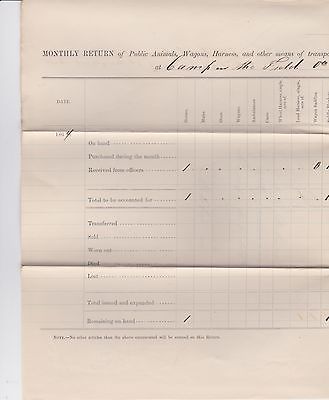 MONTHLY RETURN of Public Animals, Wagons, Harness, and other means of transpo
at Camp in the Field on
DATE. Horses. Mules. Oxen. Wagons. Ambulances. Carts. Wheel Harness, single, sets of Lead Harness, single, sets of Wagon Saddles.
1864
On hand
Purchased during the month
Received from officers 1 0 1
Total to be accounted for 1 1 1
Transferred
Sold
Worn out
Died
Lost
Total issued and expended
Remaining on hand 1 1
NOTE.—No other articles than the above enumerated will be entered on this Return.